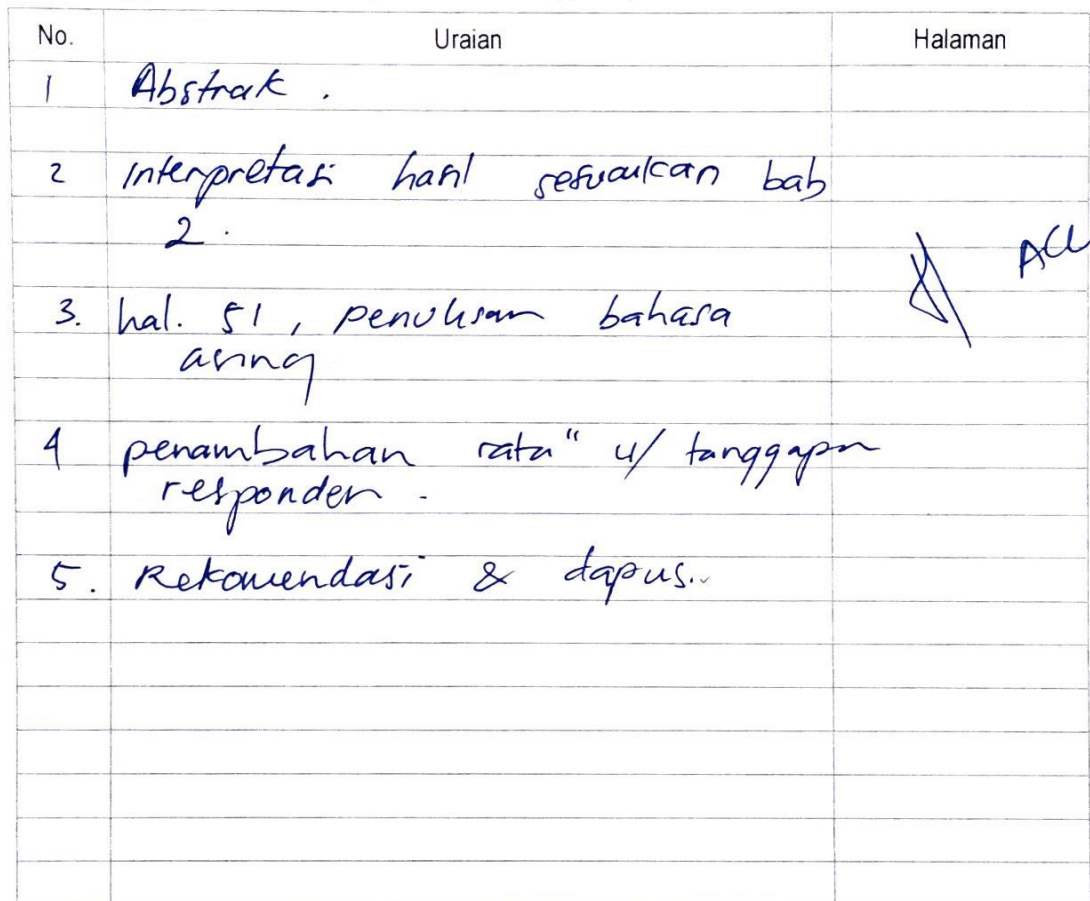 No. Uraian Halaman
1 Abstrak.
2 interpretasi hasil sesuaikan bab
2.
ACC
3. hal. 51, penulisan bahasa
asing
4 penambahan rata" u/ tanggapan
responden.
5. Rekomendasi & dapus..